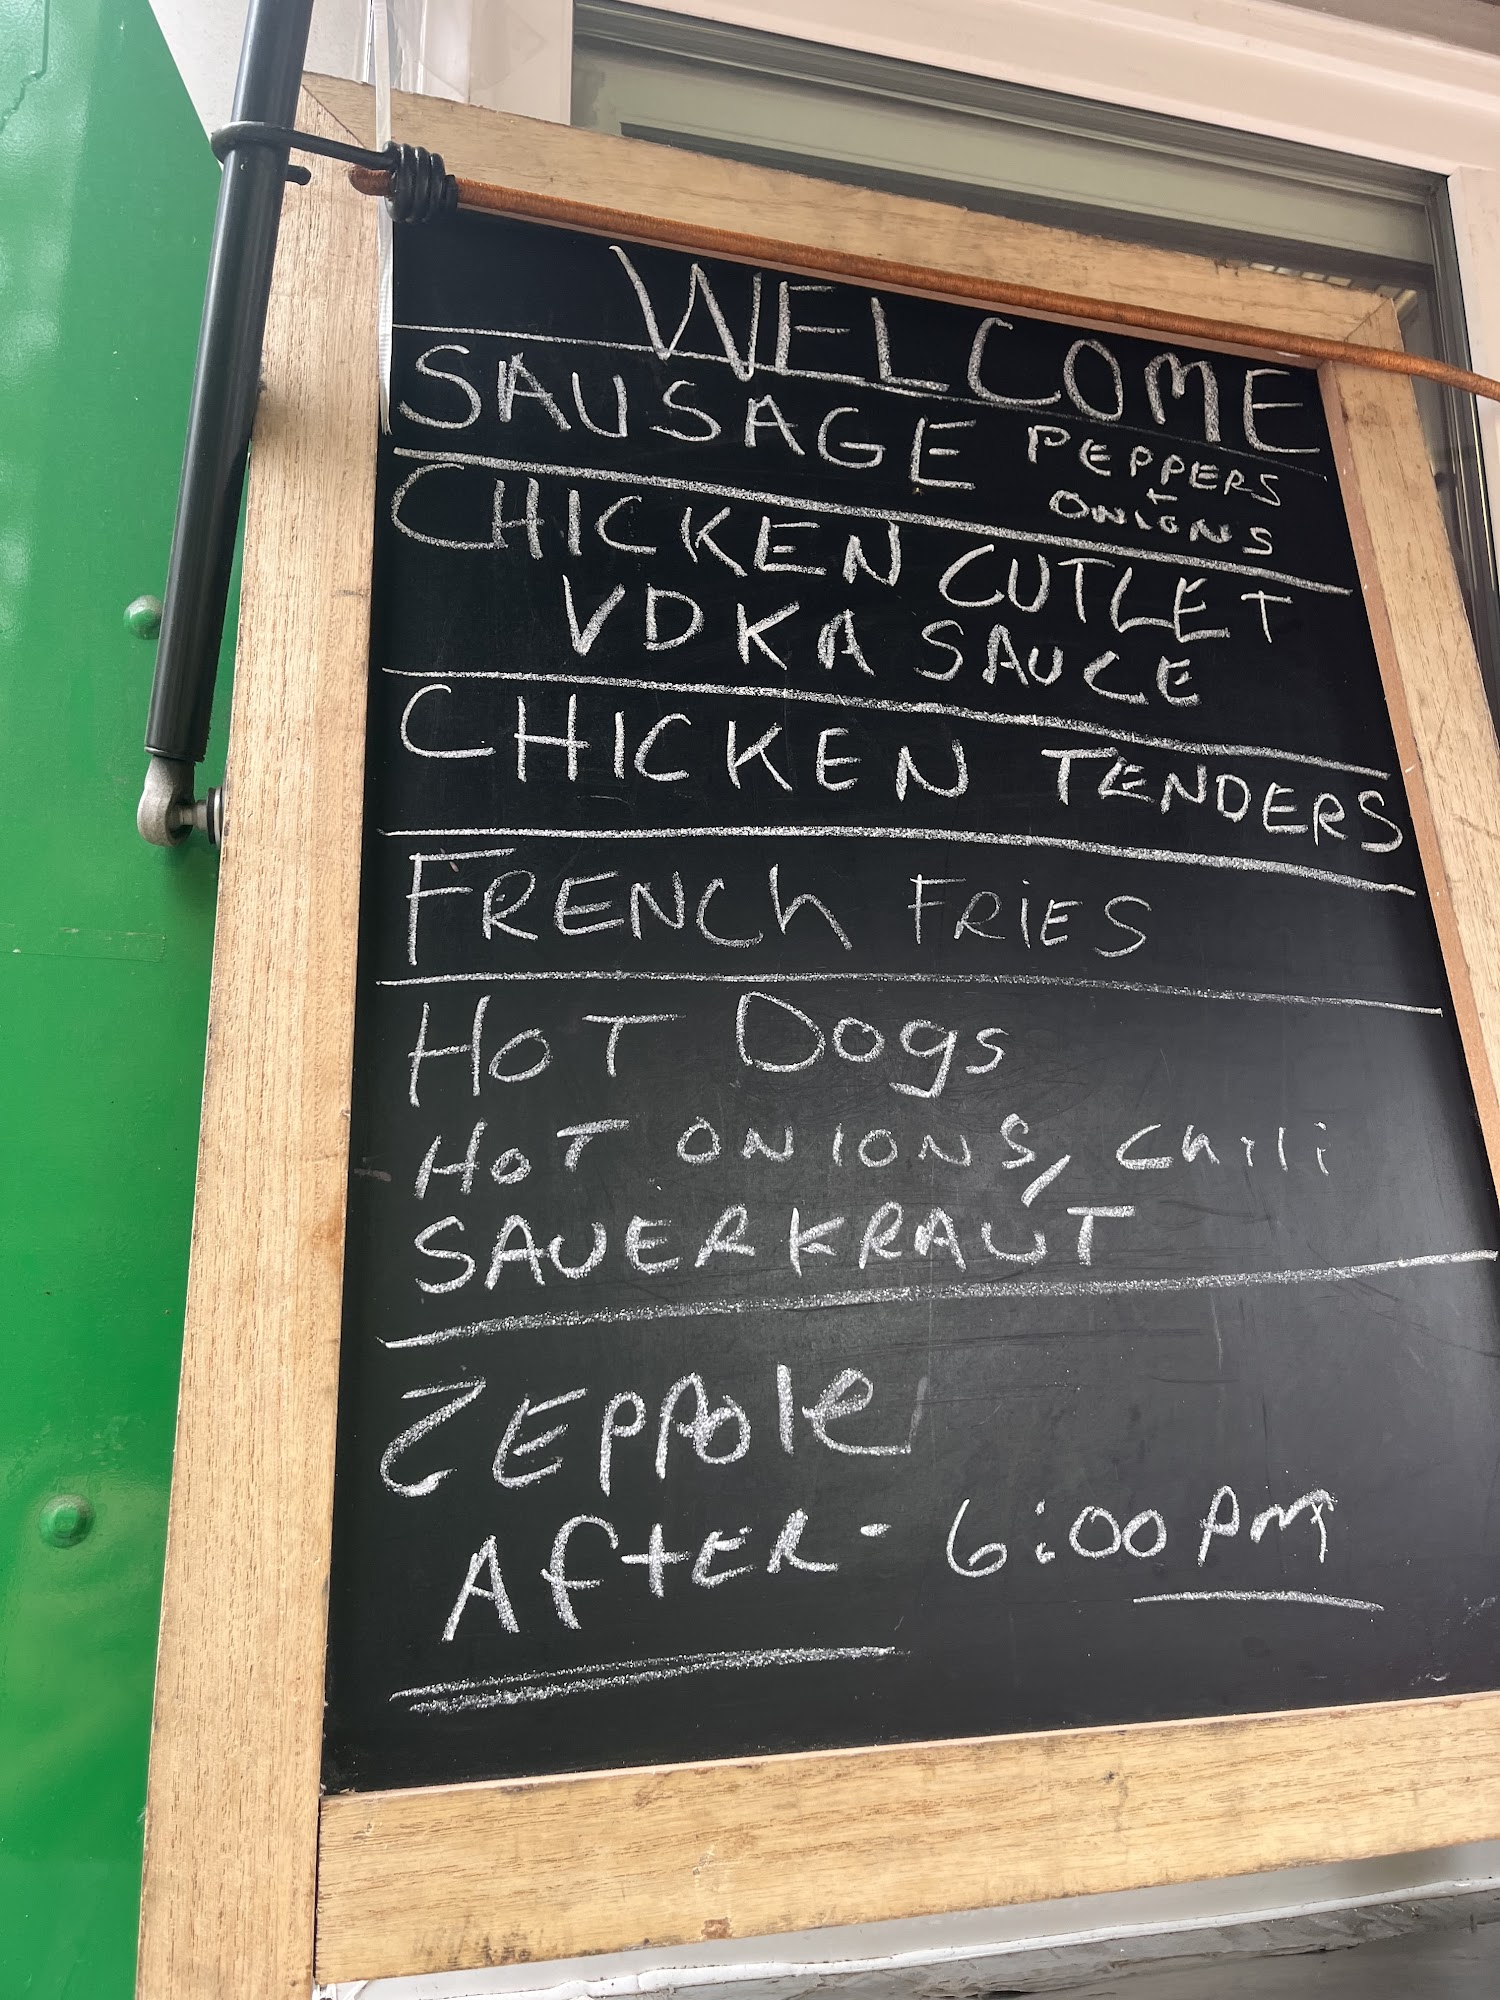 WELCOME
SAUSAGE PEPPERS
+
ONIONS
CHICKEN CUTLET
VDKA SAUCE
CHICKEN TENDERS
FRENCh FRiES
HOT Dogs
HOT ONIONS, Chili
SAUERKRAUT
ZEPPOle
AfTER - 6:00 pm